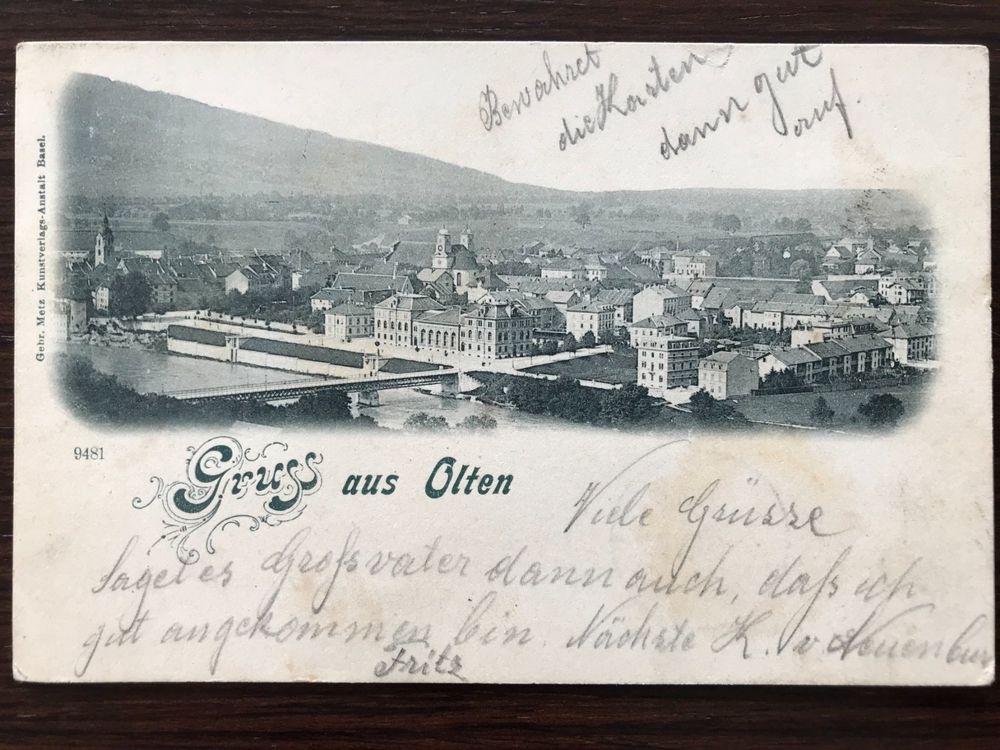 Bewahret
die Karten
dann gut
auf.
Gebr. Metz Kunstverlags-Anstalt Basel.
9481
Gruss aus Olten
Viele Grüsse
Saget es Großvater dann auch, daß ich
gut angekommen bin. Nächste K. v. Neuenburg
Fritz